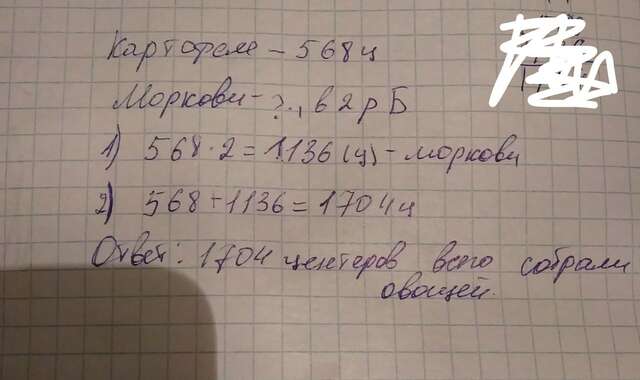 Картофеля – 568 ц
Моркови – ?, в 2 р Б
1) 568 · 2 = 1136 (ц) – моркови
2) 568 + 1136 = 1704 ц
Ответ: 1704 центеров всего собрали
овощей.